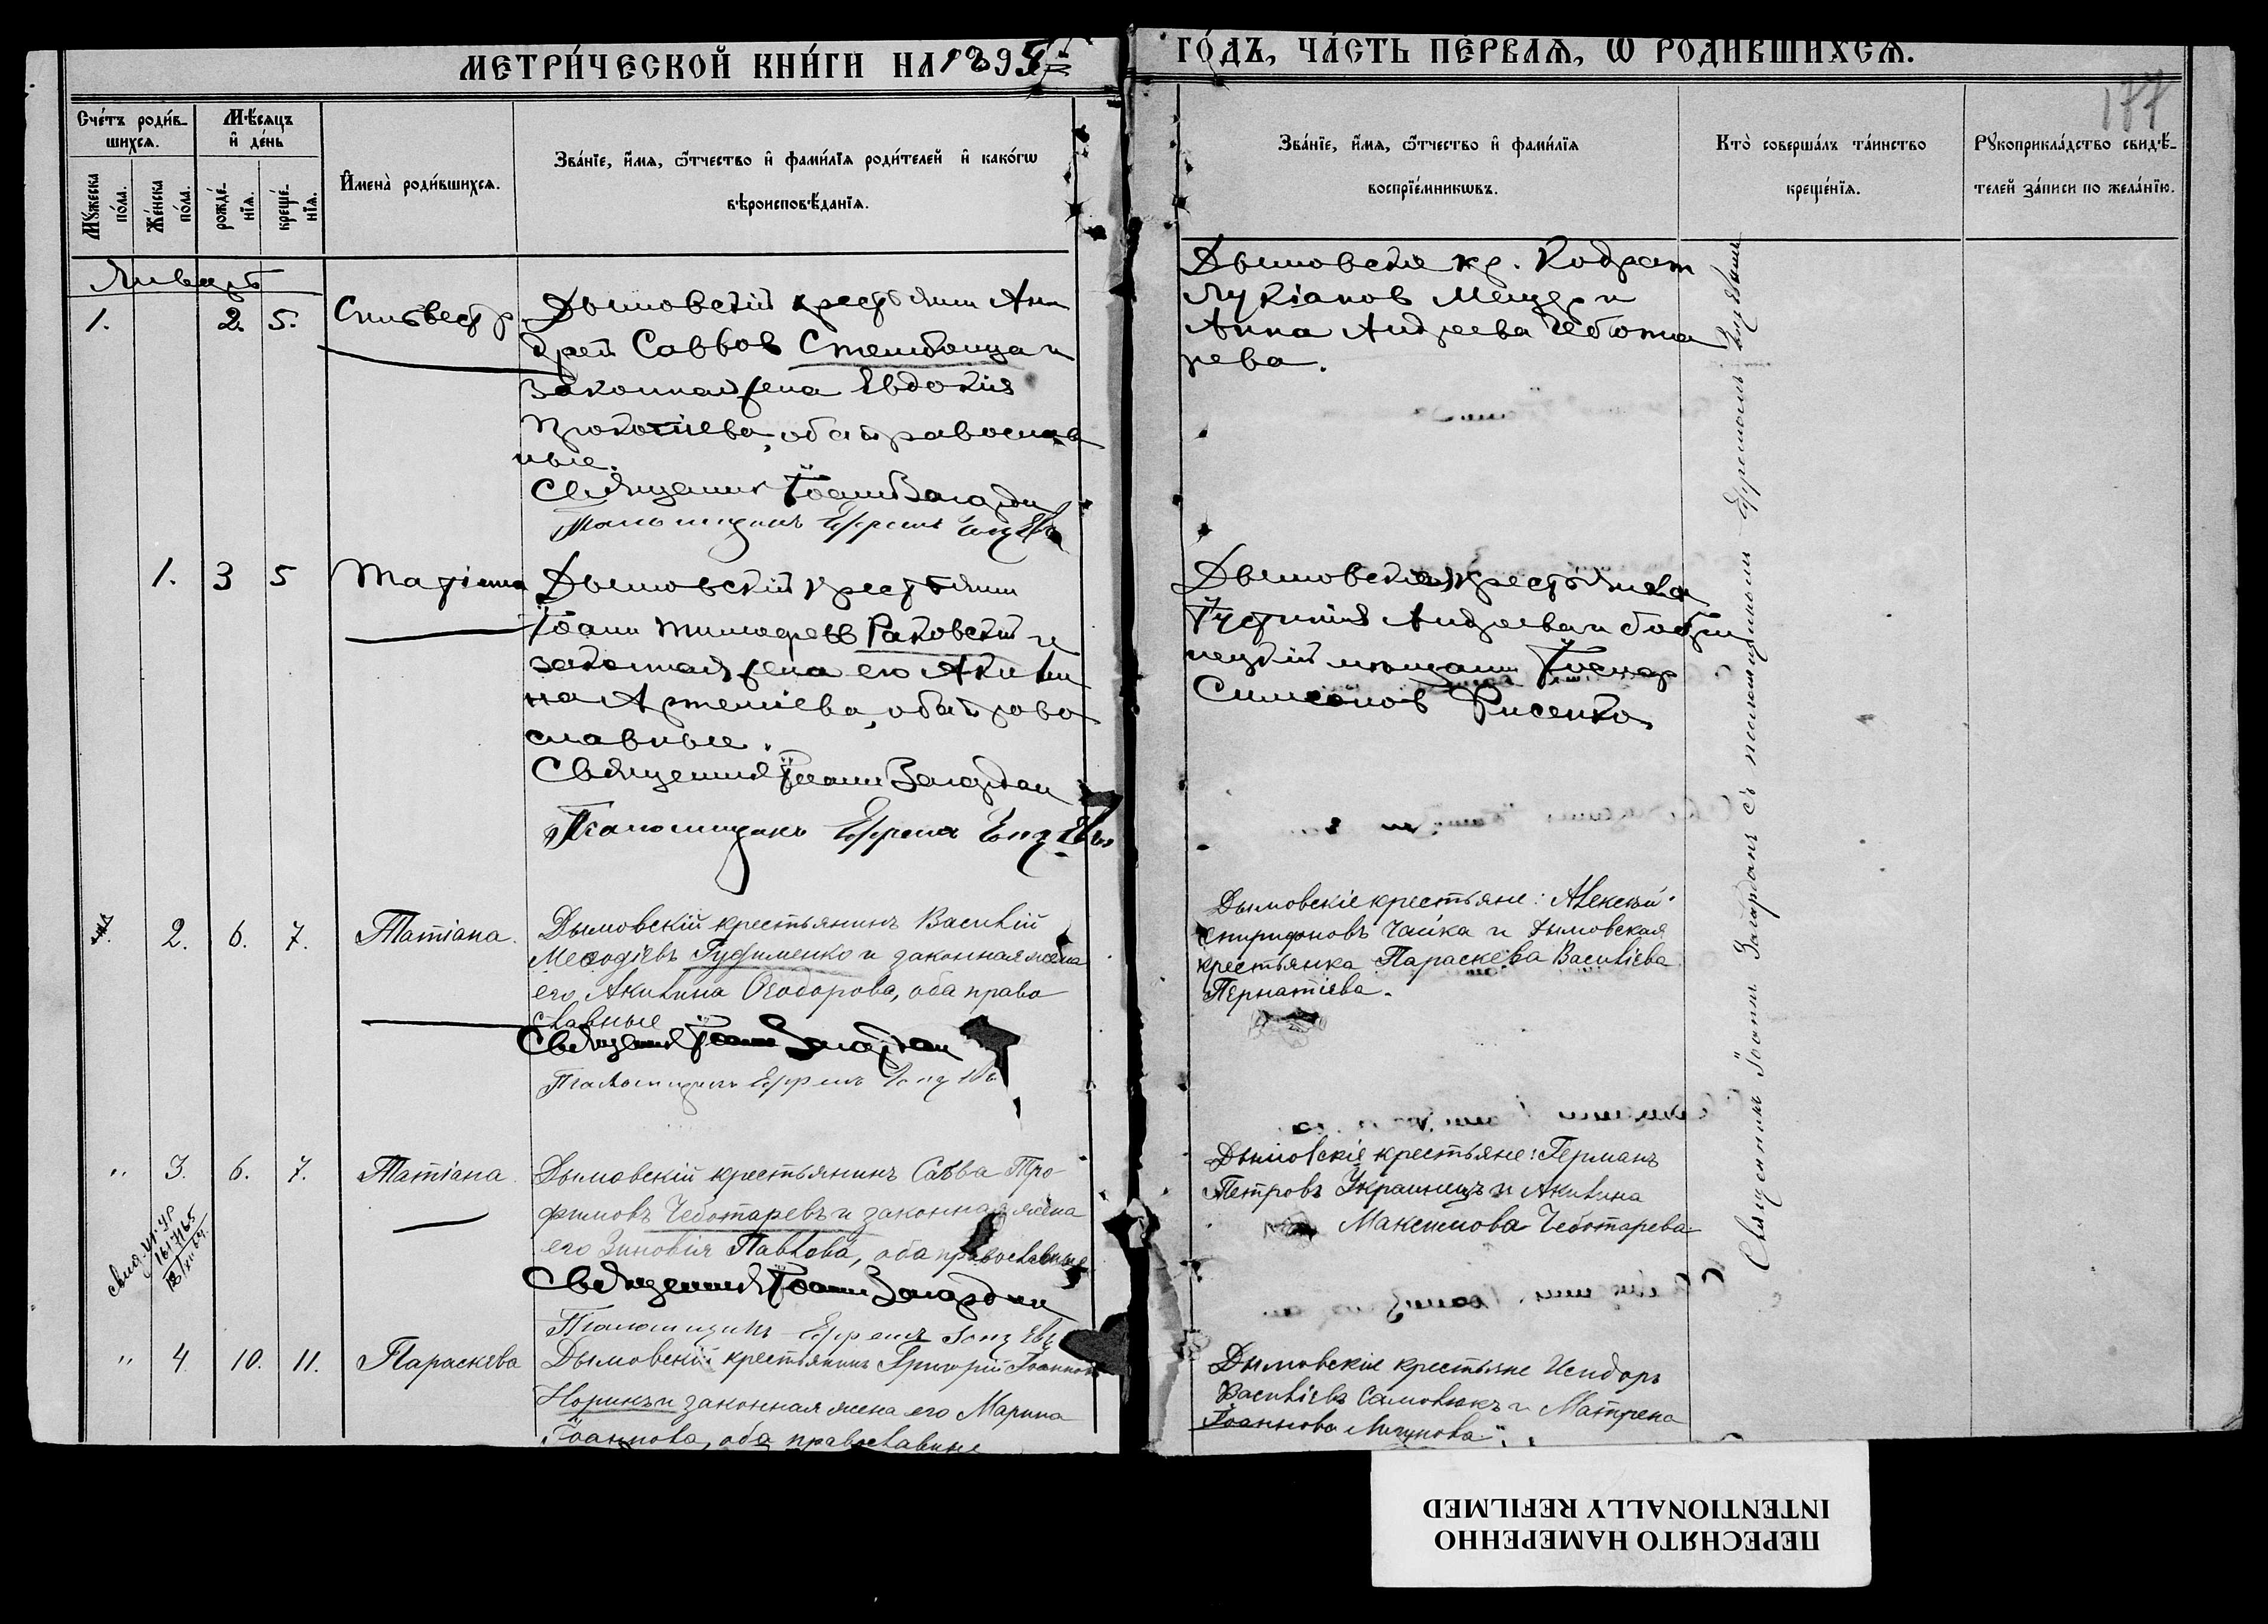 МЕТРИ́ЧЕСКОЙ КНИ́ГИ НА 1895
ГО́ДЪ, ЧА́СТЬ ПЕ́РВАѦ, Ѡ РОДИ́ВШИХСѦ.
177
Сче́тъ роди́в-
шихсѧ.
Мѣ́сѧцъ
и҆ де́нь
Мꙋ́жеска
по́ла.
Же́нска
по́ла.
рожде́-
нїѧ.
креще́-
нїѧ.
И҆мена̀ роди́вшихсѧ.
Зва́нїе, и҆́мѧ, ѻ҆́тчество и҆ фами́лїѧ роди́телей и҆ како́гѡ
вѣроисповѣ́данїѧ.
Зва́нїе, и҆́мѧ, ѻ҆́тчество и҆ фами́лїѧ
воспрїе́мникѡвъ.
Кто̀ соверша́лъ та́инство
креще́нїѧ.
Рꙋкоприкла́дство свидѣ́-
телей за́писи по жела́нїю.
Январь
1. 2. 5. Сильвестр
Дымовскій крестьянин Ан
дрей Саввов Стембовца и
законная жена Евдокія
Прокопіева, оба православ
ные.
Священник Іоанн Загордан
Псаломщикъ Ефремъ
Дымовскіе кр. Кодрат
Лукіанов Мещер и
Анна Андреева Чебота
рева.
1. 3 5 Татіана
Дымовскій крестьянин
Іоанн Тимофеев Раковскій и
законная жена его Акили
на Артеміева, оба право
славные.
Священник Іоанн Загордан
Псаломщикъ Ефремъ
Дымовская крестьянка
Іустинія Андреева и
мещанин
Симеонов Рисенко
2. 6. 7. Татіана.
Дымовскій крестьянинъ Василій
Меѳодіевъ Гудименко и законная жена
его Акилина Ѳеодорова, оба право
славные
Священник Іоанн Загордан
Псаломщикъ Ефремъ
Дымовскіе крестьяне: Алексѣй
Спиридоновъ Чайка и Дымовская
крестьянка Параскева Василіева
Пернатіева.
" 3. 6. 7. Татіана.
Дымовскій крестьянинъ Савва Тро
фимовъ Чеботаревъ и законная жена
его Зиновія Павлова, оба православные
Священник Іоанн Загордан
Псаломщикъ Ефремъ
Дымовскіе крестьяне: Германъ
Петровъ Украинецъ и Акилина
Максимова Чеботарева
" 4. 10. 11. Параскева
Дымовскій крестьянинъ Григорій Іоанновъ
Норикъ и законная жена его Марина
Іоаннова, оба православные
Дымовскіе крестьяне Исидоръ
Василіевъ Самовлюкъ и Матрена
Іоаннова
Священникъ Іоаннъ Загорданъ съ псаломщикомъ Ефремомъ
ПЕРЕСНЯТО НАМЕРЕННО
INTENTIONALLY REFILMED